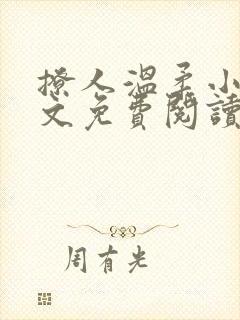 撩人溫柔小
文免費閱讀
周有光